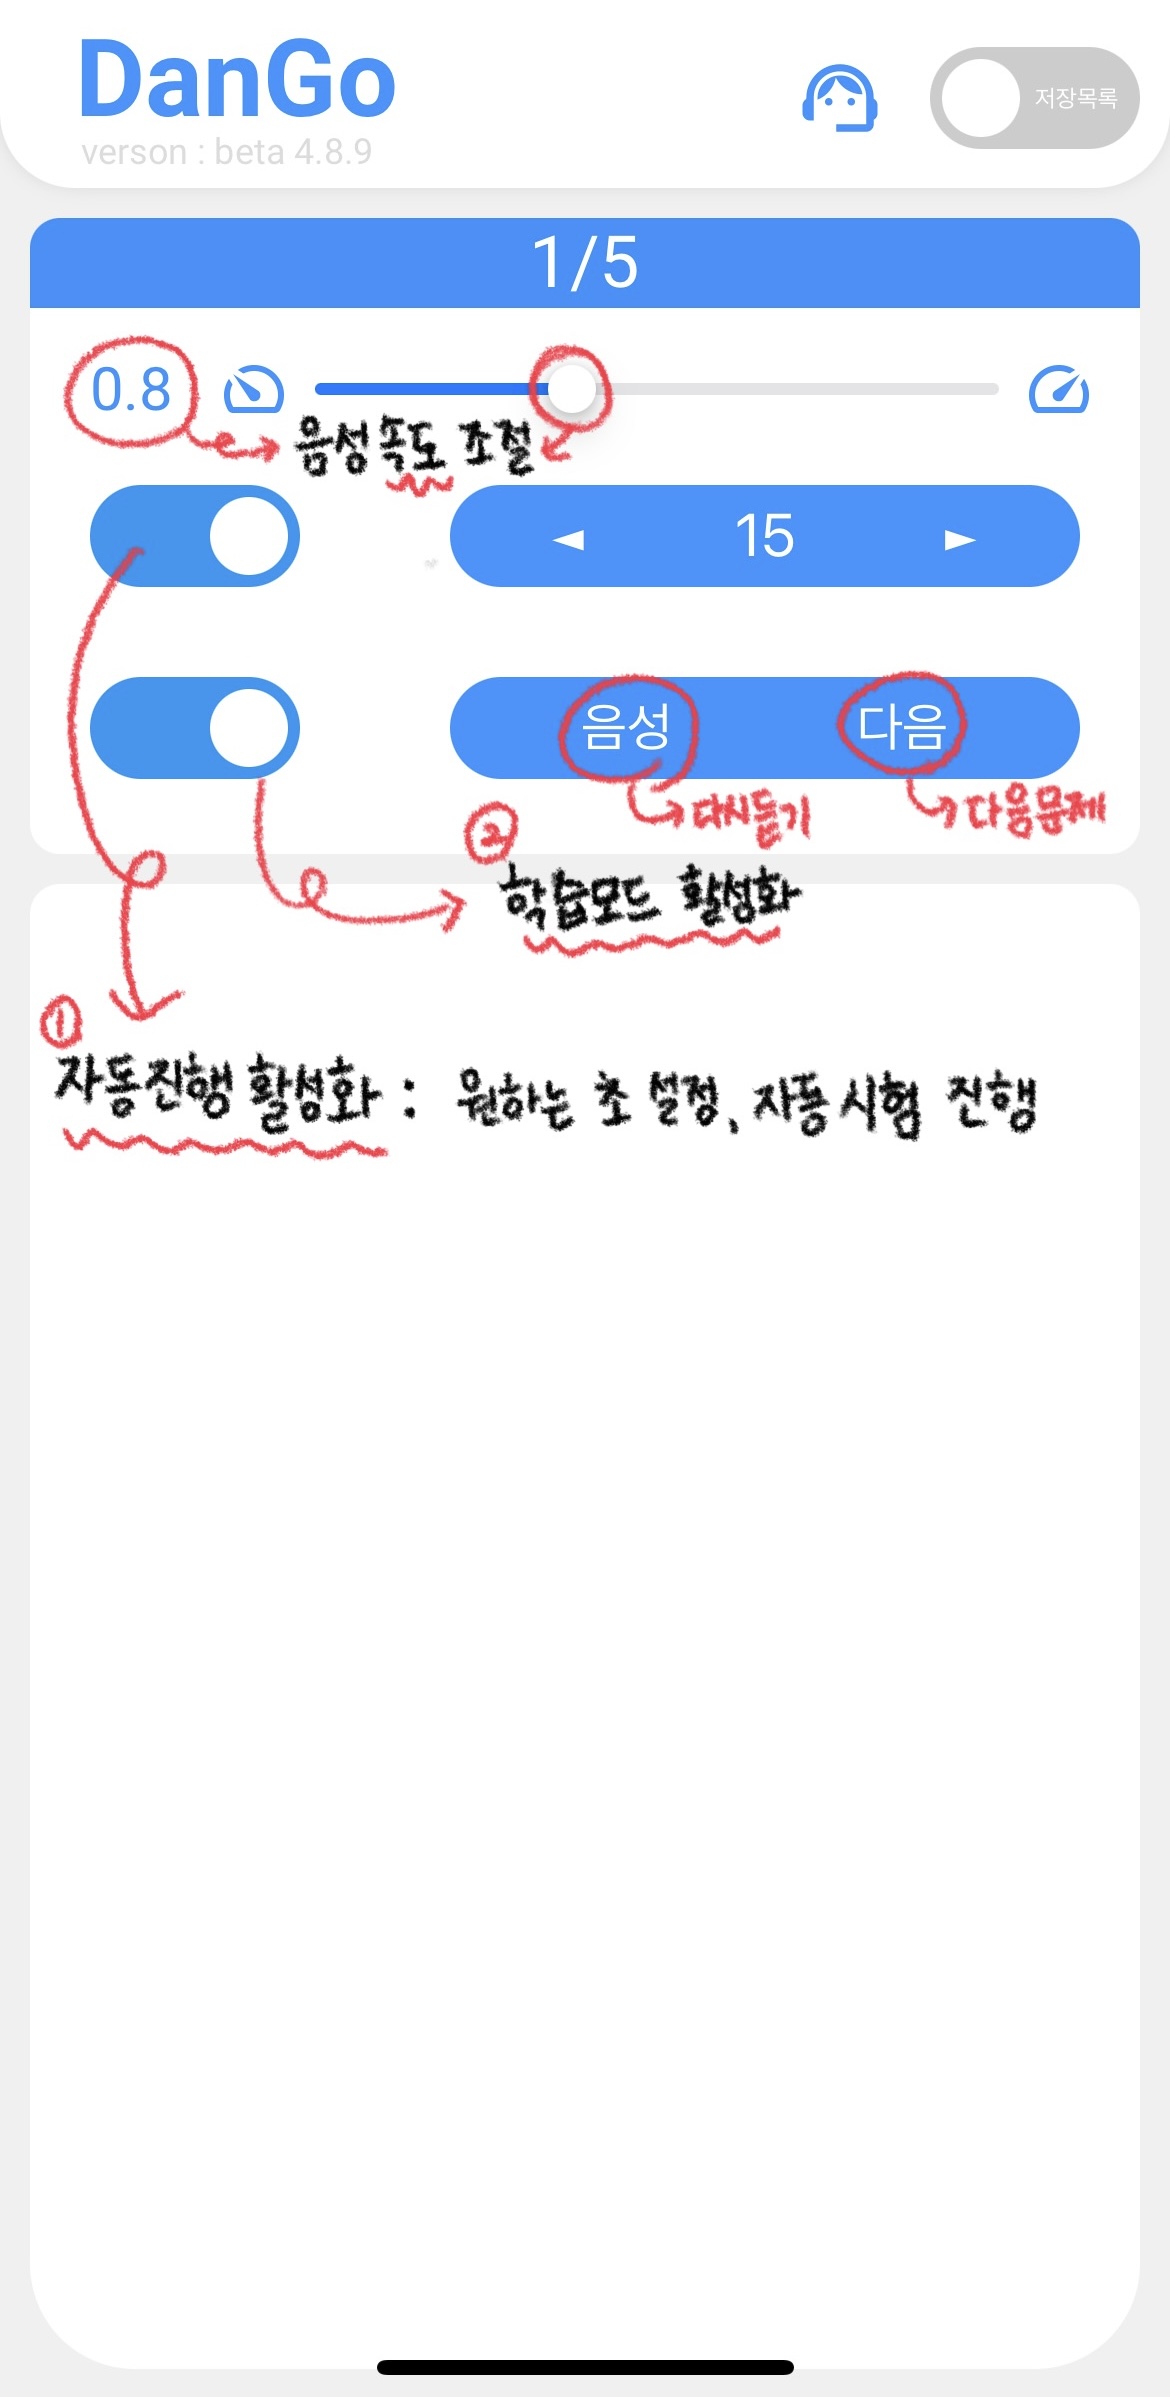 DanGo
저장목록
verson : beta 4.8.9
1/5
0.8
음성속도 조절
◄ 15 ►
음성 다음
다시듣기 다음문제
②
학습모드 활성화
①
자동진행 활성화 : 원하는 초 설정, 자동시험 진행